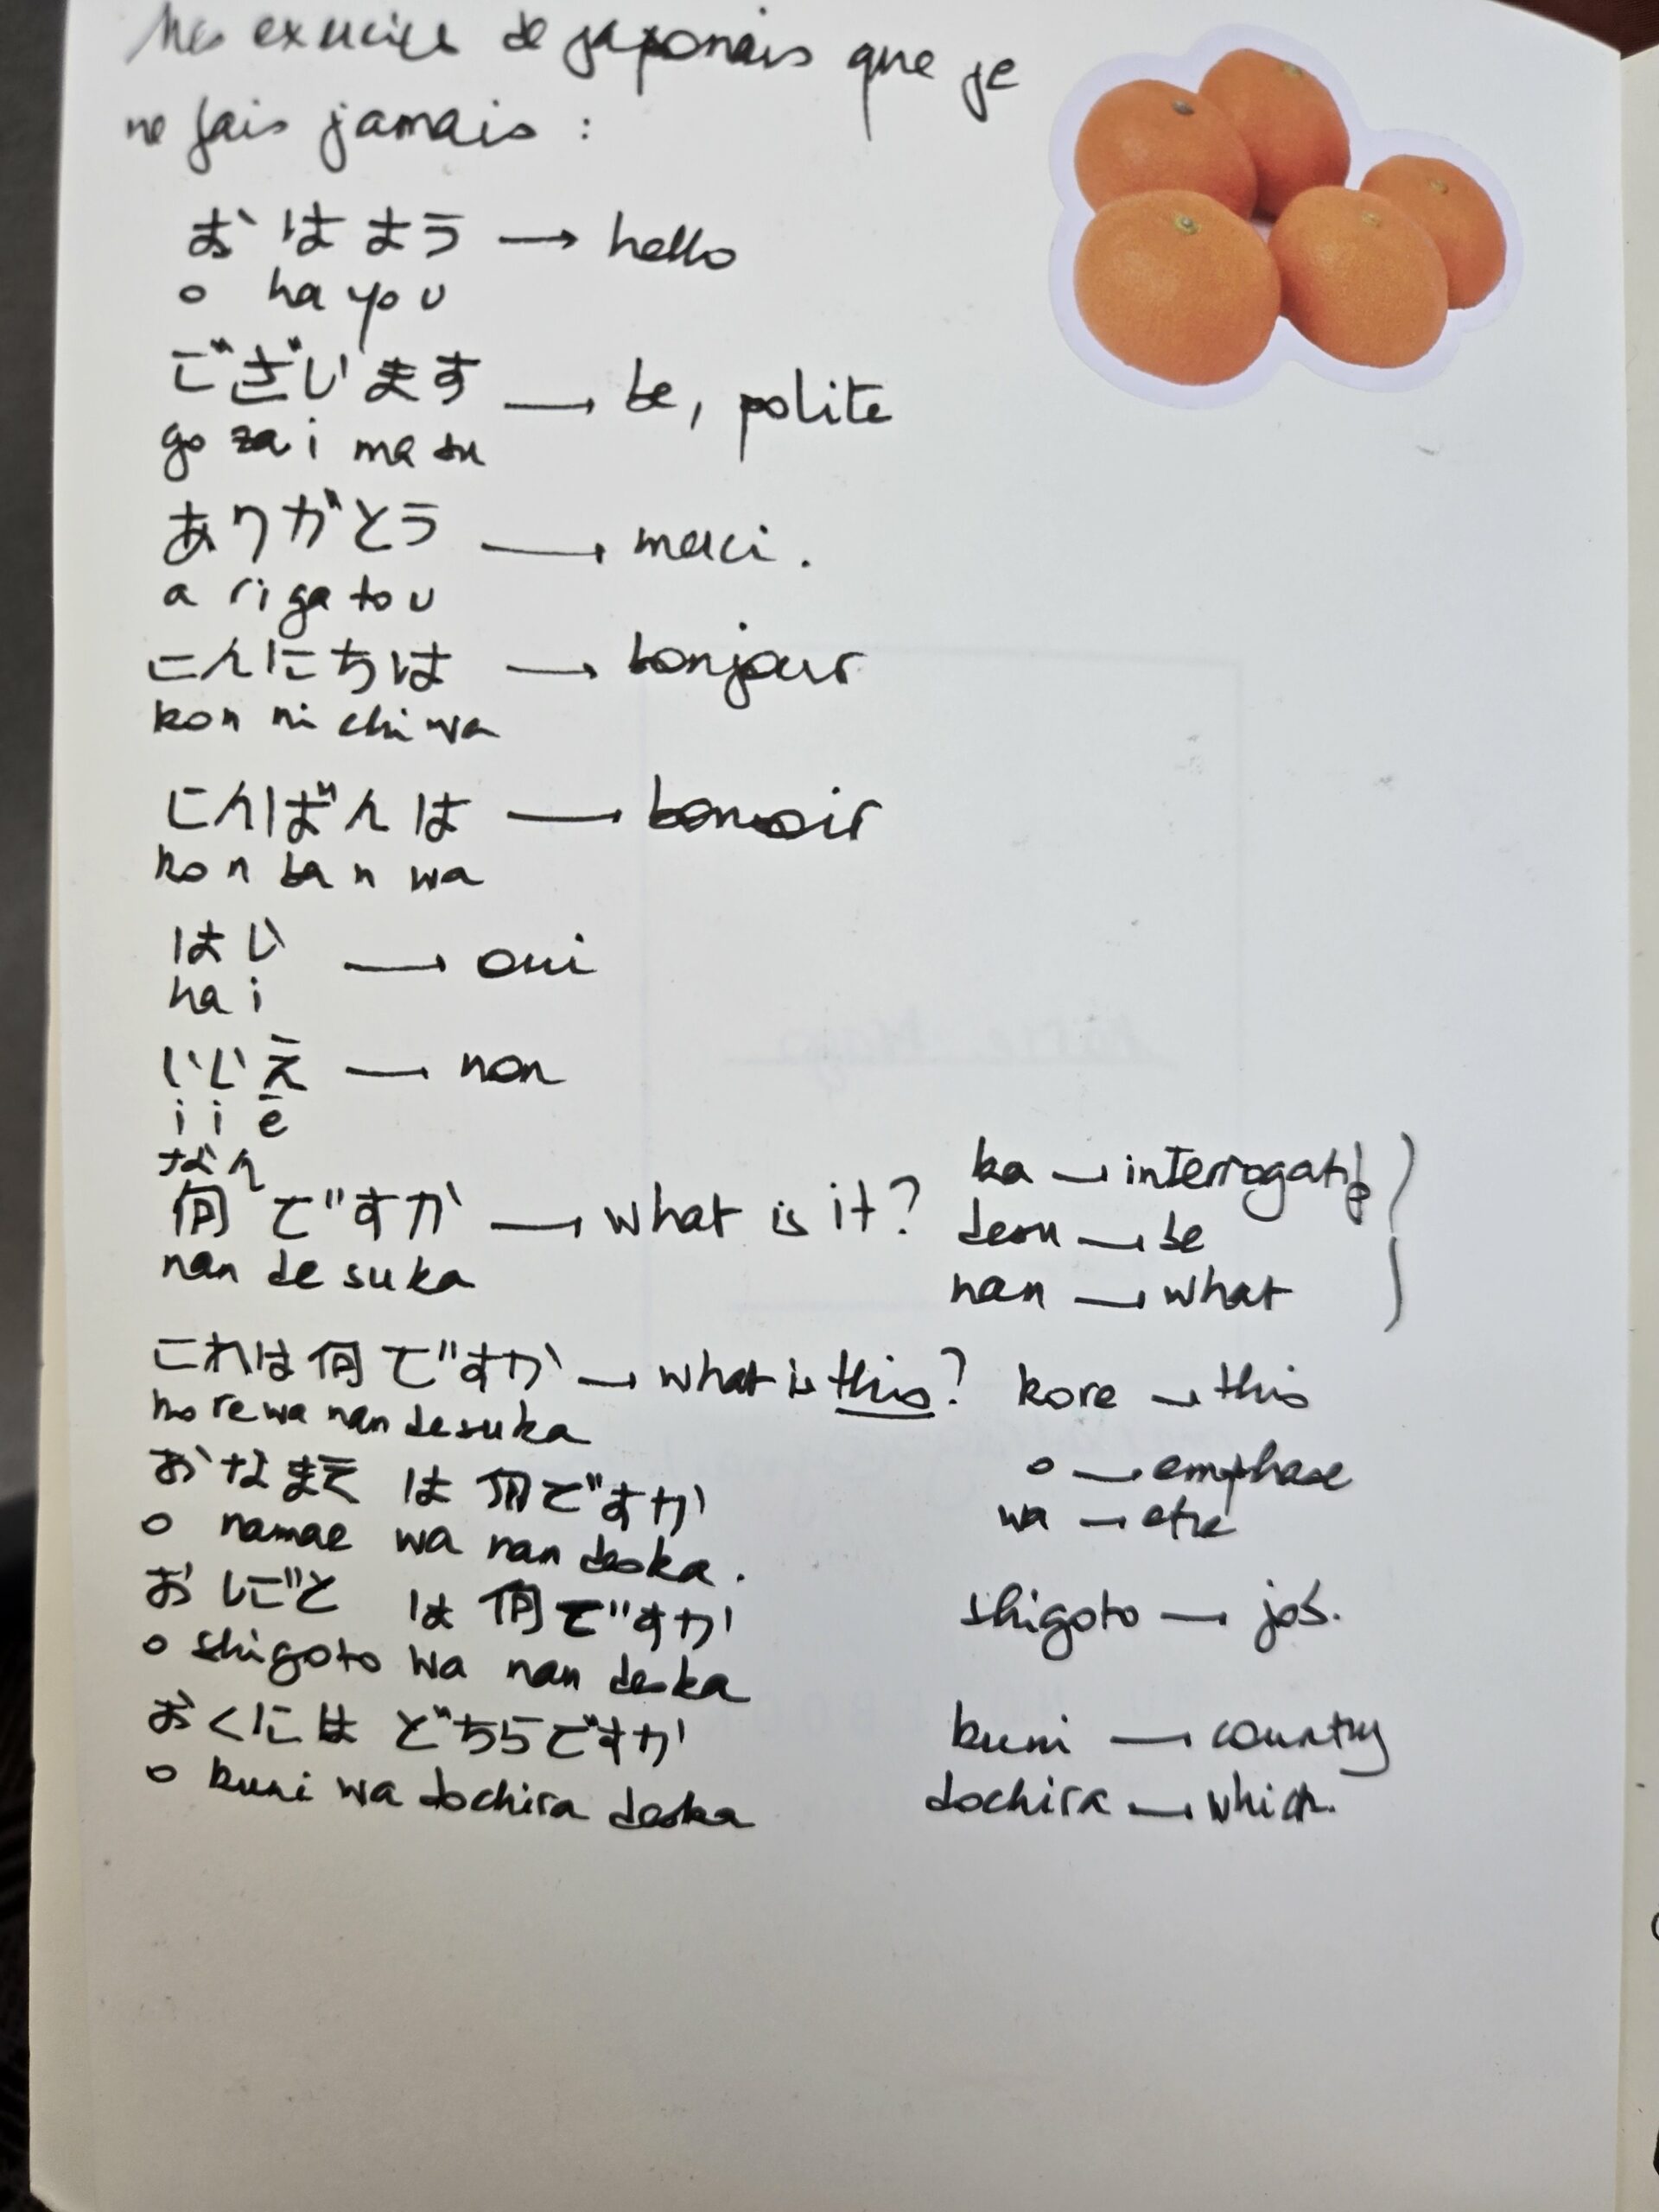 Mes exercices de japonais que je
ne fais jamais :
おはよう → hello
o ha yo u
ございます → be, polite
go za i ma su
ありがとう → merci.
a ri ga to u
こんにちは → bonjour
kon ni chi wa
こんばんは → bonsoir
ko n ba n wa
はい → oui
ha i
いいえ → non
i i e
なん
何ですか → what is it?
nan de su ka
ka → interrogatif
desu → be
nan → what
これは何ですか → what is this? kore → this
ko re wa nan desuka
おなまえ は 何ですか o → emphase
o namae wa nan deska. wa → etre
おしごと は 何ですか
o shigoto wa nan deska shigoto → job.
おくには どちらですか kuni → country
o kuni wa dochira deska dochira → which.